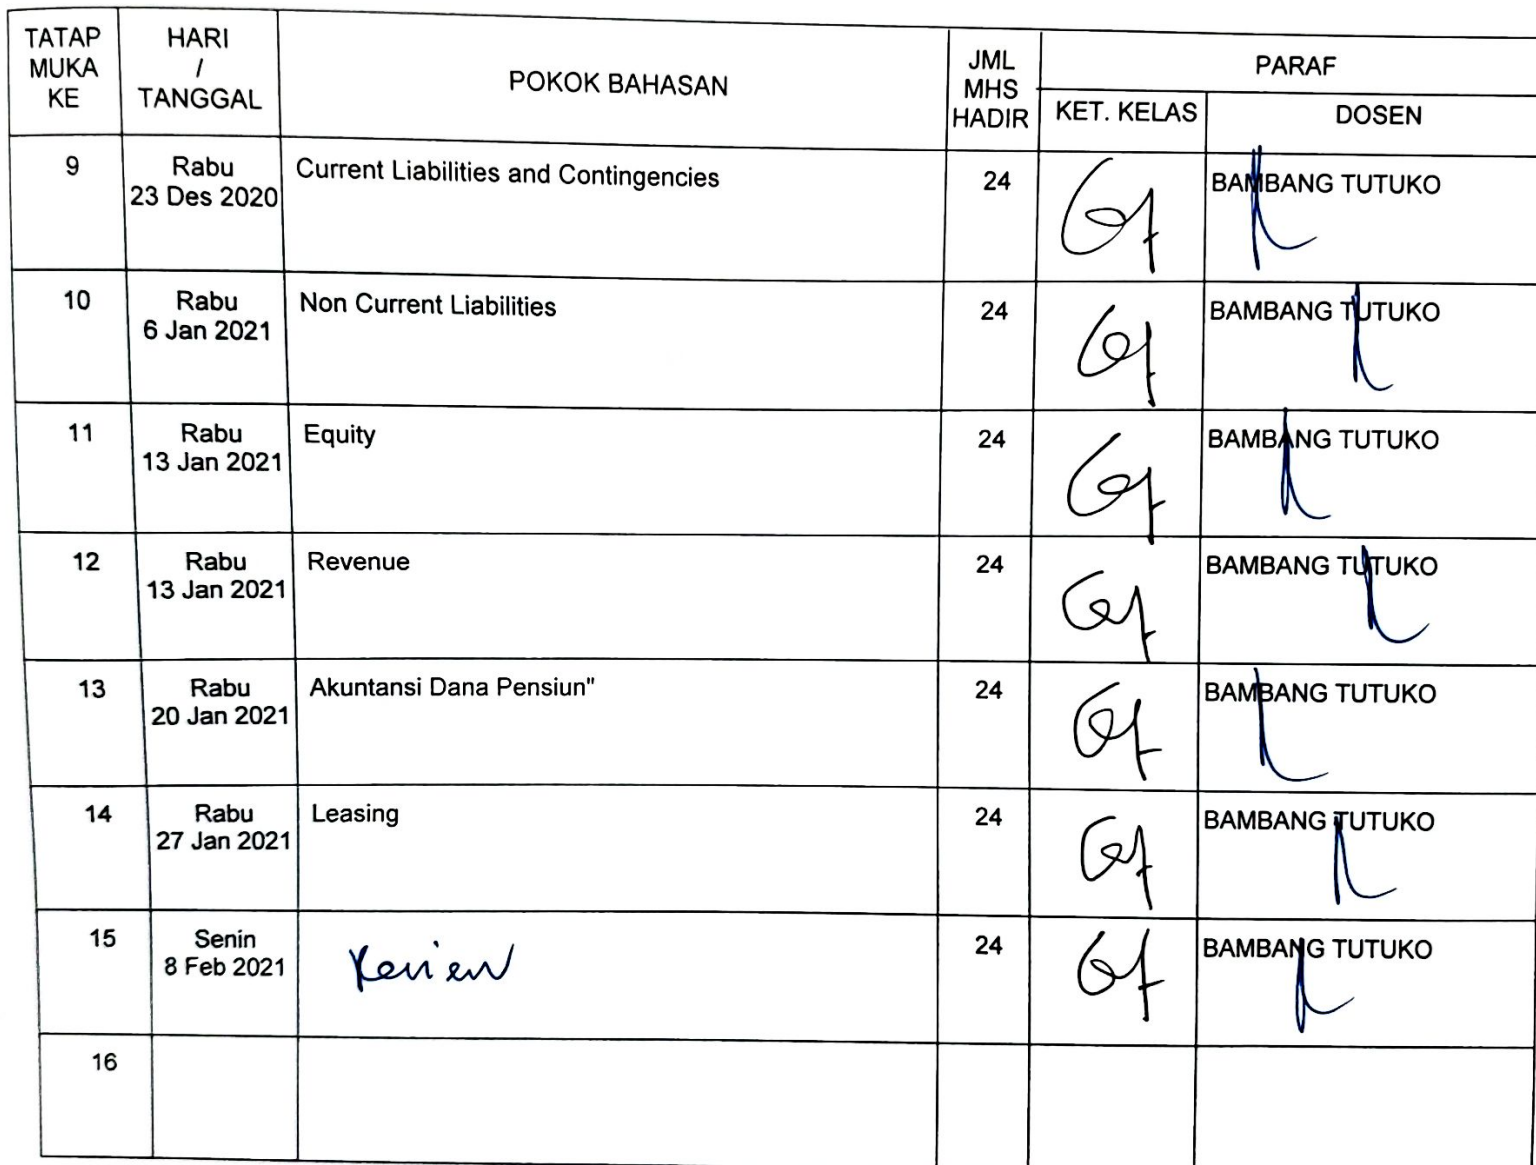 TATAP MUKA KE
HARI / TANGGAL
POKOK BAHASAN
JML MHS HADIR
PARAF
KET. KELAS
DOSEN
9
Rabu
23 Des 2020
Current Liabilities and Contingencies
24
BAMBANG TUTUKO
10
Rabu
6 Jan 2021
Non Current Liabilities
24
BAMBANG TUTUKO
11
Rabu
13 Jan 2021
Equity
24
BAMBANG TUTUKO
12
Rabu
13 Jan 2021
Revenue
24
BAMBANG TUTUKO
13
Rabu
20 Jan 2021
Akuntansi Dana Pensiun"
24
BAMBANG TUTUKO
14
Rabu
27 Jan 2021
Leasing
24
BAMBANG TUTUKO
15
Senin
8 Feb 2021
Review
24
BAMBANG TUTUKO
16